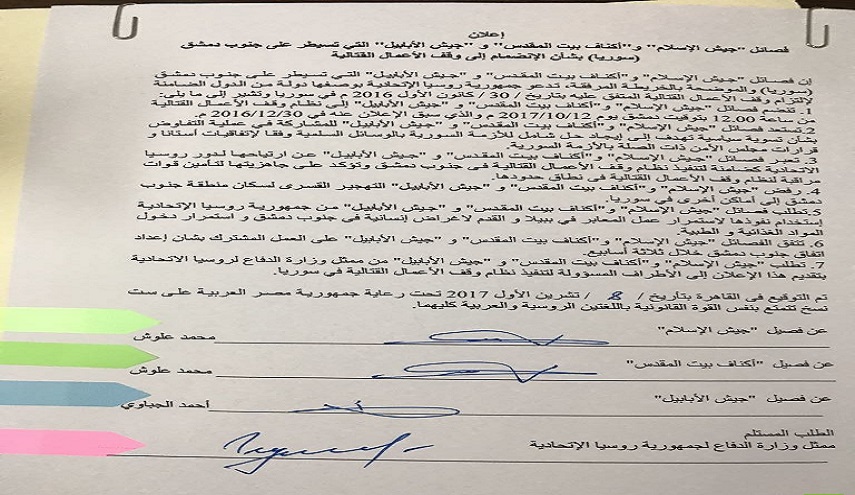 إعلان
فصائل "جيش الإسلام" و"أكناف بيت المقدس" و "جيش الأبابيل" التي تسيطر على جنوب دمشق
(سوريا) بشأن الإنضمام إلى وقف الأعمال القتالية
إن فصائل "جيش الإسلام" و "أكناف بيت المقدس" و "جيش الأبابيل" التي تسيطر على جنوب دمشق
(سوريا) والموضحة بالخريطة المرفقة، تدعو جمهورية روسيا الإتحادية بوصفها دولة من الدول الضامنة
لإلتزام وقف الأعمال القتالية المتفق عليه بتاريخ / 30 / كانون الأول 2016 م في سوريا وتشير إلى ما يلي:
1. تنضم فصائل "جيش الإسلام" و "أكناف بيت المقدس" و "جيش الأبابيل" إلى نظام وقف الأعمال القتالية
من ساعة 12.00 بتوقيت دمشق يوم 2017/10/12 م والذي سبق الإعلان عنه في 2016/12/30 م.
2.تستعد فصائل "جيش الإسلام" و "أكناف بيت المقدس" و "جيش الأبابيل" للمشاركة في عملية التفاوض
بشأن تسوية سياسية تهدف إلى إيجاد حل شامل للأزمة السورية بالوسائل السلمية وفقا لإتفاقيات أستانا و
قرارات مجلس الأمن ذات الصلة بالأزمة السورية.
3. تعبر فصائل "جيش الإسلام" و "أكناف بيت المقدس" و "جيش الأبابيل" عن ارتياحها لدور روسيا
الاتحادية كضامنة لتنفيذ نظام وقف الأعمال القتالية في جنوب دمشق وتؤكد على جاهزيتها لتأمين قوات
مراقبة لنظام وقف الأعمال القتالية في نطاق حدودها.
4. رفض "جيش الإسلام" و "أكناف بيت المقدس" و "جيش الأبابيل" التهجير القسرى لسكان منطقة جنوب
دمشق إلى أماكن أخرى في سوريا.
5.تطلب فصائل "جيش الإسلام" و "أكناف بيت المقدس" و "جيش الأبابيل" من جمهورية روسيا الإتحادية
إستخدام نفوذها لاستمرار عمل المعابر في ببيلا و القدم لاغراض إنسانية في جنوب دمشق و استمرار دخول
المواد الغذائية و الطبية.
6. تتفق الفصائل "جيش الإسلام" و "أكناف بيت المقدس" و "جيش الأبابيل" على العمل المشترك بشان إعداد
اتفاق جنوب دمشق خلال ثلاثة أسابيع.
7. تطلب "جيش الإسلام" و "أكناف بيت المقدس" و "جيش الأبابيل" من ممثل وزارة الدفاع لروسيا الاتحادية
بتقديم هذا الإعلان إلى الأطراف المسؤولة لتنفيذ نظام وقف الأعمال القتالية في سوريا.
تم التوقيع في القاهرة بتاريخ / / تشرين الأول 2017 تحت رعاية جمهورية مصر العربية على ست
نسخ تتمتع بنفس القوة القانونية باللغتين الروسية والعربية كليهما.
عن فصيل "جيش الإسلام" محمد علوش
عن فصيل "أكناف بيت المقدس" محمد علوش
عن فصيل "جيش الأبابيل" أحمد الجباوي
الطلب المستلم
ممثل وزارة الدفاع لجمهورية روسيا الإتحادية